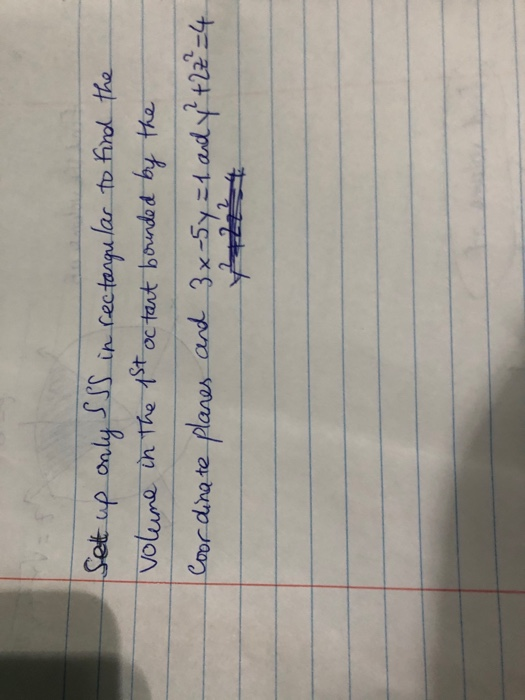 Set up only ∫∫∫ in rectangular to find the
volume in the 1st octant bounded by the
coordinate planes and 3x-5y=1 and y²+2z²=4
y²+2z²=4